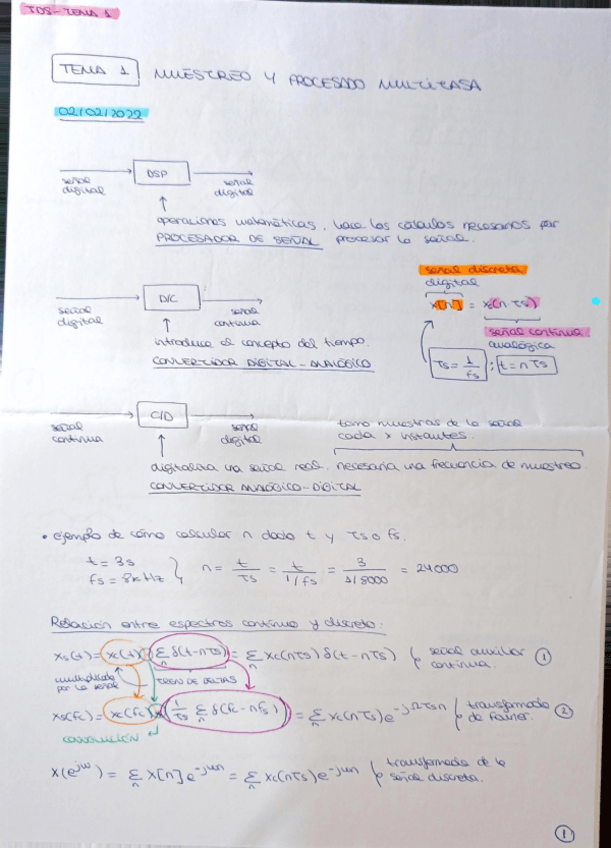 TDS - TEMA 1
TEMA 1 MUESTREO Y PROCESADO MULTITASA
02/02/2022
señal digital → DSP → señal digital
operaciones matemáticas, hace los cálculos necesarios par
PROCESADOR DE SEÑAL procesar la señal.
señal discreta
digital
x[n] = xc(n Ts)
señal continua
analógica
Ts = 1/fs ; t = n Ts
señal digital → D/C → señal continua
introduce el concepto del tiempo.
CONVERTIDOR DIGITAL - ANALÓGICO
señal continua → C/D → señal digital
tomo muestras de la señal
cada x instantes.
digitaliza una señal real. necesaria una frecuencia de muestreo
CONVERTIDOR ANALÓGICO - DIGITAL
• ejemplo de cómo calcular n dado t y Ts o fs.
t = 3s
fs = 8kHz } n = t/Ts = t/(1/fs) = 3/(1/8000) = 24000
Relación entre espectros continuo y discreto:
xs(t) = xc(t) · (Σn δ(t-nTs)) = Σn xc(nTs) δ(t-nTs) señal auxiliar continua. ①
multiplicado por la señal
TREN DE DELTAS
Xs(fc) = Xc(fc) * (1/Ts Σn δ(fc-nfs)) = Σn xc(nTs) e^-jΩTsn transformada de Fourier. ②
CONVOLUCIÓN
X(e^jω) = Σn x[n] e^-jωn = Σn xc(nTs) e^-jωn transformada de la señal discreta.
①